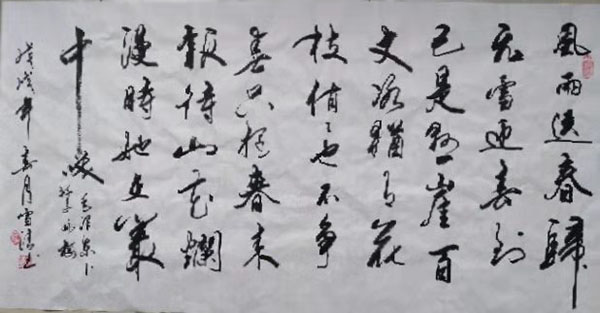 風雨送春歸
飛雪迎春到
已是懸崖百
丈冰猶有花
枝俏俏也不争
春只把春来
報待山花爛
漫時她在叢
中笑
毛泽东卜
算子咏梅
戊戌年春月雪